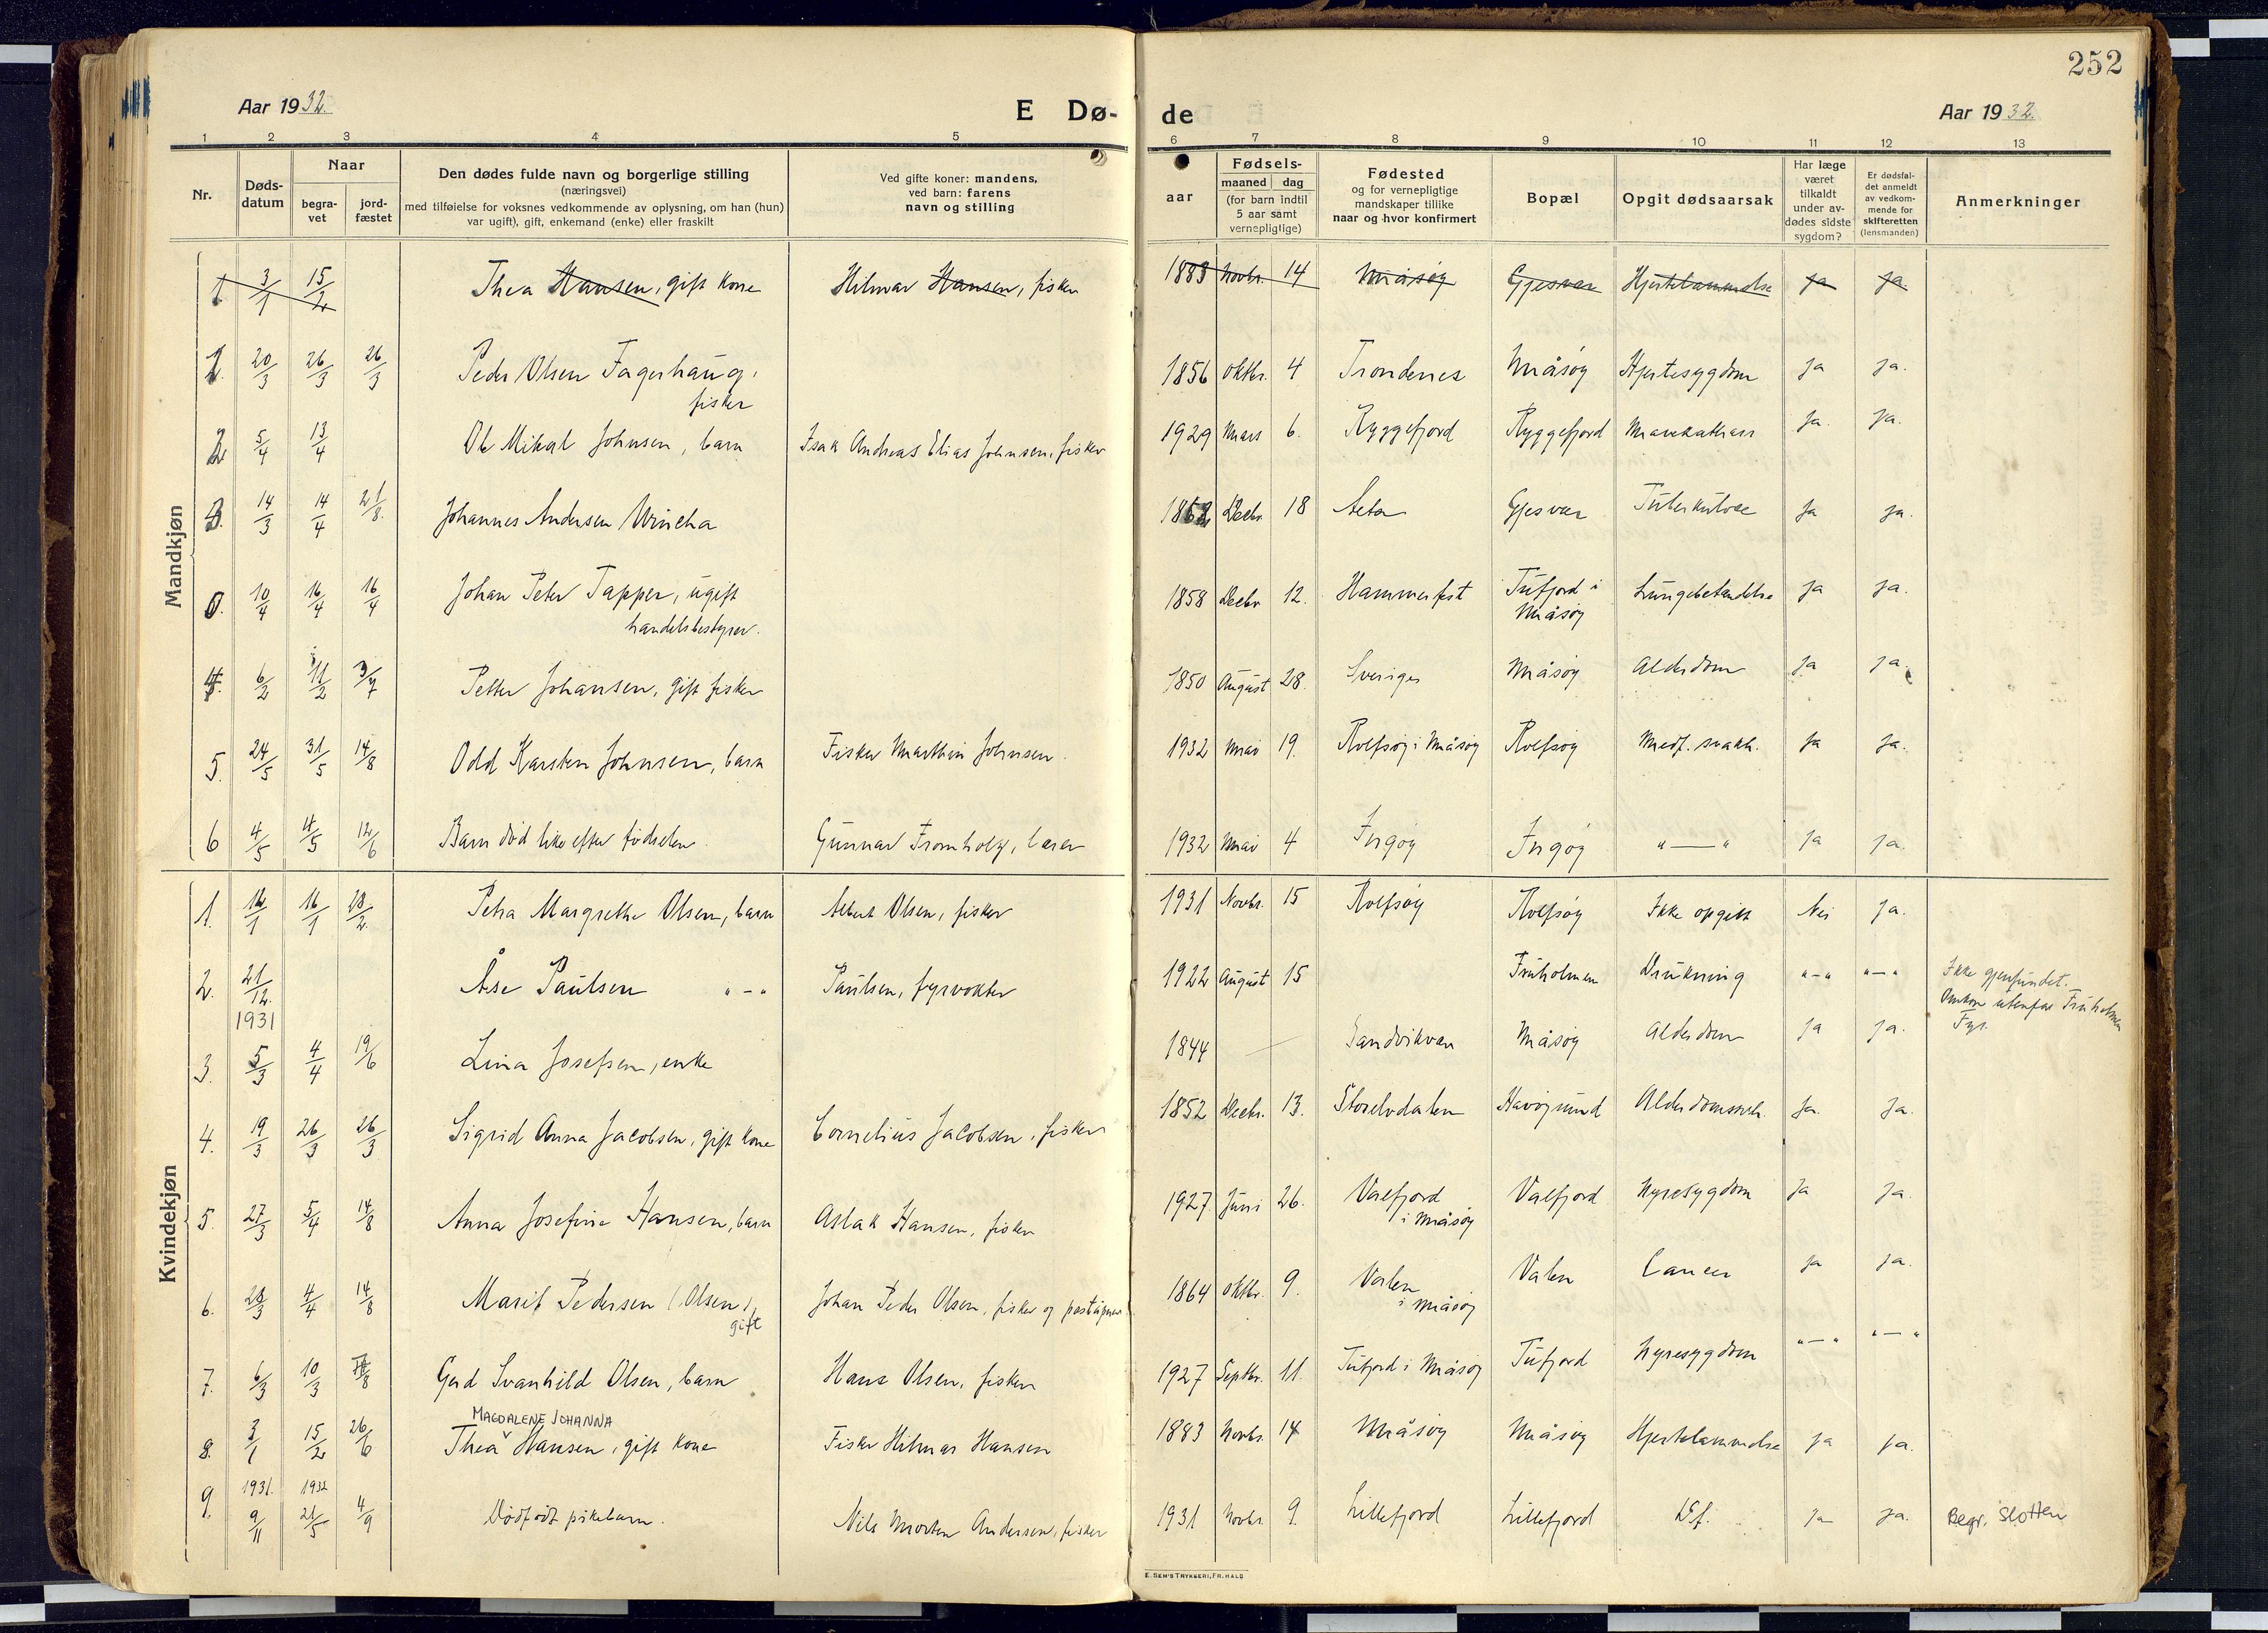 252
Aar 1932.
E Dø-
de
Aar 1932.
1 2 3 4 5 6 7 8 9 10 11 12 13
Nr.
Døds-
datum
Naar
begra-
vet
jord-
fæstet
Den dødes fulde navn og borgerlige stilling
(næringsvei)
med tilføielse for voksnes vedkommende av oplysning, om han (hun)
var ugift), gift, enkemand (enke) eller fraskilt
Ved gifte koner: mandens,
ved barn: farens
navn og stilling
aar
Fødsels-
maaned dag
(for barn indtil
5 aar samt
vernepligtige)
Fødested
og for vernepligtige
mandskaper tillike
naar og hvor konfirmert
Bopæl
Opgit dødsaarsak
Har læge
været
tilkaldt
under av-
dødes sidste
sygdom?
Er dødsfal-
det anmeldt
av vedkom-
mende for
skifteretten
(lensmanden)
Anmerkninger
Mandkjøn
1 3/1 15/2 Thea Hansen, gift kone Hilmar Hansen, fisker 1883 Novbr. 14 Måsøy Gjesvær Hjertelammelse Ja Ja.
1. 20/3 26/3 26/3 Peder Olsen Fagerhaug, 1856 Oktbr. 4 Trondenes Måsøy Hjertesygdom Ja Ja.
fisker
2 5/4 13/4 Ole Mikal Johnsen, barn Isak Andreas Elias Johnsen, fisker 1929 Mars 6. Ryggefjord Ryggefjord Mavekatharr Ja. Ja.
3. 14/3 14/4 21/8. Johannes Andersen Decbr. 18 Gjesvær Tuberkulose Ja Ja.
10/4 16/4 16/4 Johan Peter Tapper, ugift 1858 Decbr 12. Hammerfest Tufjord i Lungebetendelse Ja Ja.
handelsbestyrer. Måsøy
4. 6/2 11/2 3/7 Petter Johansen, gift fisker 1850 August 28. Sverige Måsøy Alderdom Ja Ja.
5. 24/5 31/5 14/8 Odd Karsten Johnsen, barn Fisker Marthin Johnsen. 1932 Mai 19. Rolfsøy i Måsøy Rolfsøy Medf. svakh. Ja Ja.
6 4/5 4/5 12/6 Barn død like efter fødselen. Gunnar Fromholz, lærer 1932 Mai 4 Ingøy Ingøy " — " Ja Ja.
Kvindekjøn
1. 16/1 28/2 Petra Margrethe Olsen, barn Albert Olsen, fisker 1931 Novbr. 15 Rolfsøy Rolfsøy Ikke opgitt Nei Ja.
2. 21/12. Åse Paulsen " — " Paulsen, fyrvokter 1922 August 15 Fruholmen Drukning " — " " — " Ikke gjenfundet.
1931 Omkom utenfor Fruholmen
Fyr.
3. 5/3 4/4 19/6 Lina Josefsen, enke 1844 — Sandvikvær Måsøy Alderdom Ja Ja.
4. 19/3 26/3 26/3 Sigrid Anna Jacobsen, gift kone Cornelius Jacobsen, fisker 1852 Decbr. 13. Storelvdalen Havøysund Alderdomssvakh. Ja. Ja.
5. 27/3 5/4 14/8 Anna Josefine Hansen, barn Aslak Hansen, fisker 1927. Juni 26. Valfjord Valfjord Nyresygdom Ja Ja.
i Måsøy
6. 28/3 4/4 14/8 Marit Pedersen (Olsen), Johan Peder Olsen, fisker og poståpner 1864 Oktbr. 9. Valen Valen Cancer Ja Ja.
gift i Måsøy
7. 6/3 10/3 Gerd Svanhild Olsen, barn Hans Olsen, fisker 1927 Septbr. 11. Tufjord i Måsøy Tufjord Nyresygdom " — " " — "
MAGDALENE JOHANNA
8. 3/1 15/2 26/6 Thea Hansen, gift kone Fisker Hilmar Hansen 1883 Novbr. 14 Måsøy Måsøy Hjertelammelse Ja Ja.
1931. 1932
9. 9/11 21/5 4/9 Dødfødt pikebarn. Nils Morten Andersen, fisker 1931 Novbr. 9. Lillefjord Lillefjord Df. Ja Ja. Begr. Slotten
E. SEM'S TRYKKERI, FR.HALD